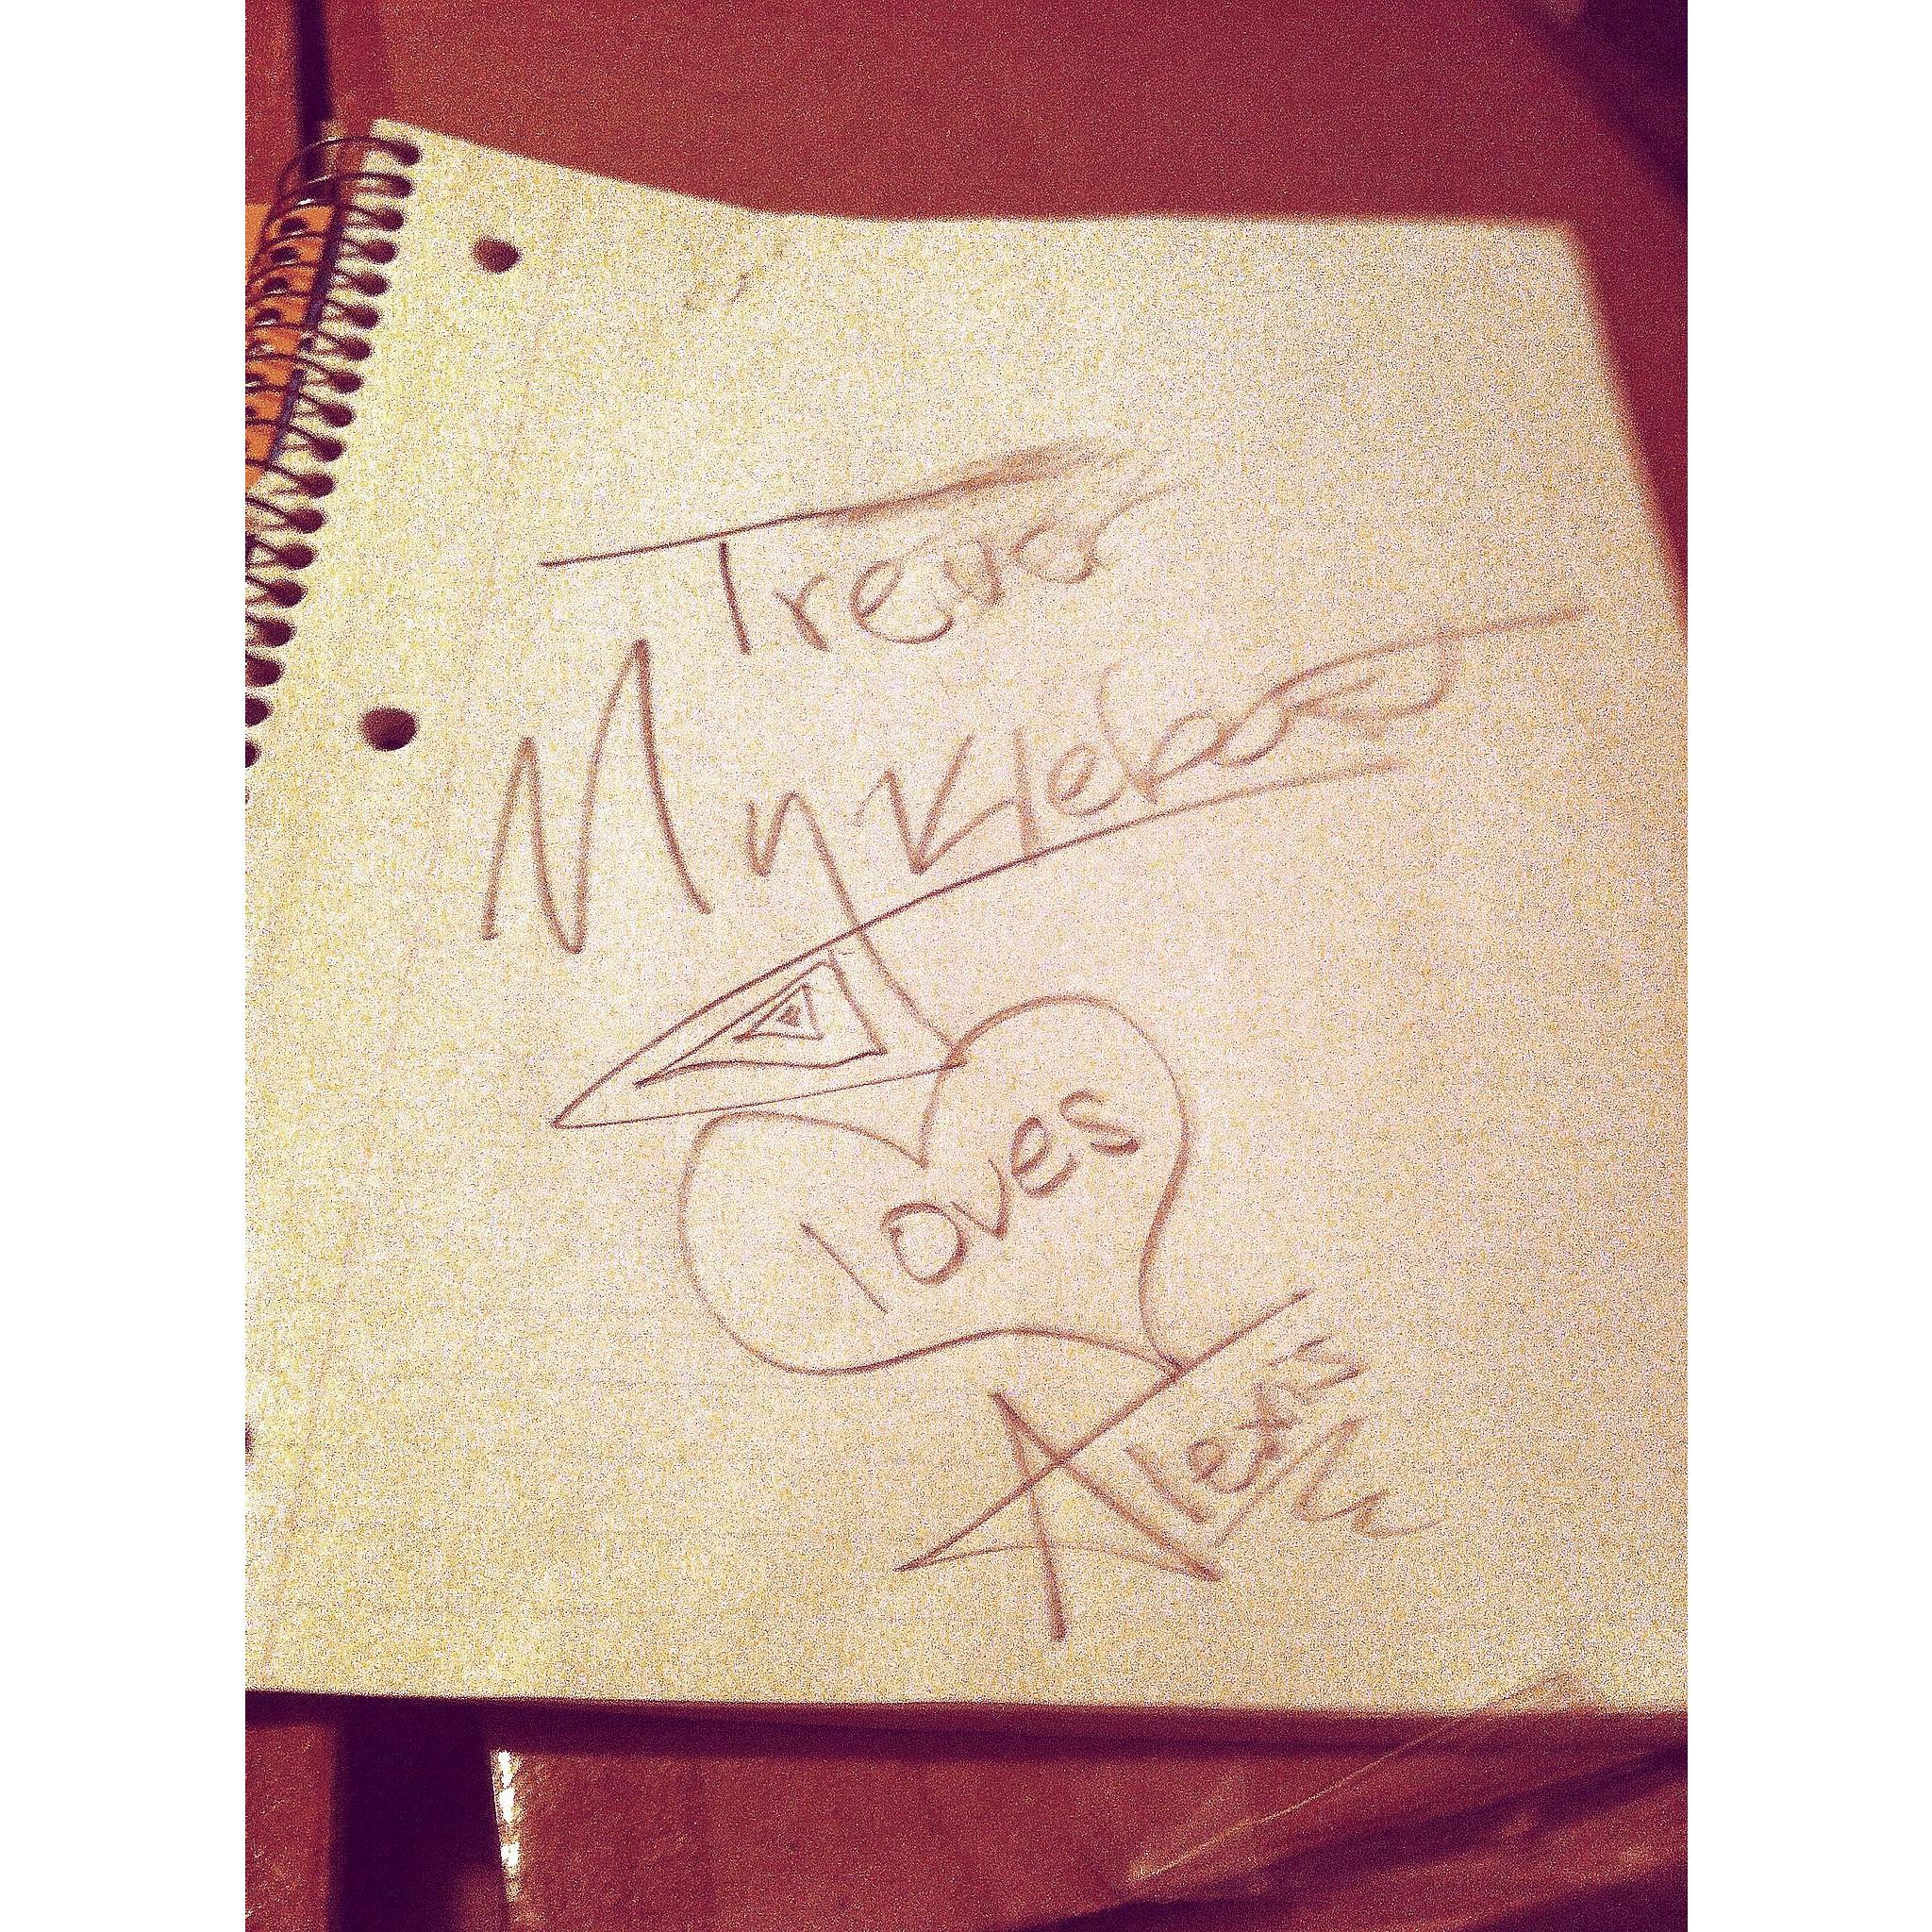 Trevor
Myklebost
loves
Alexis